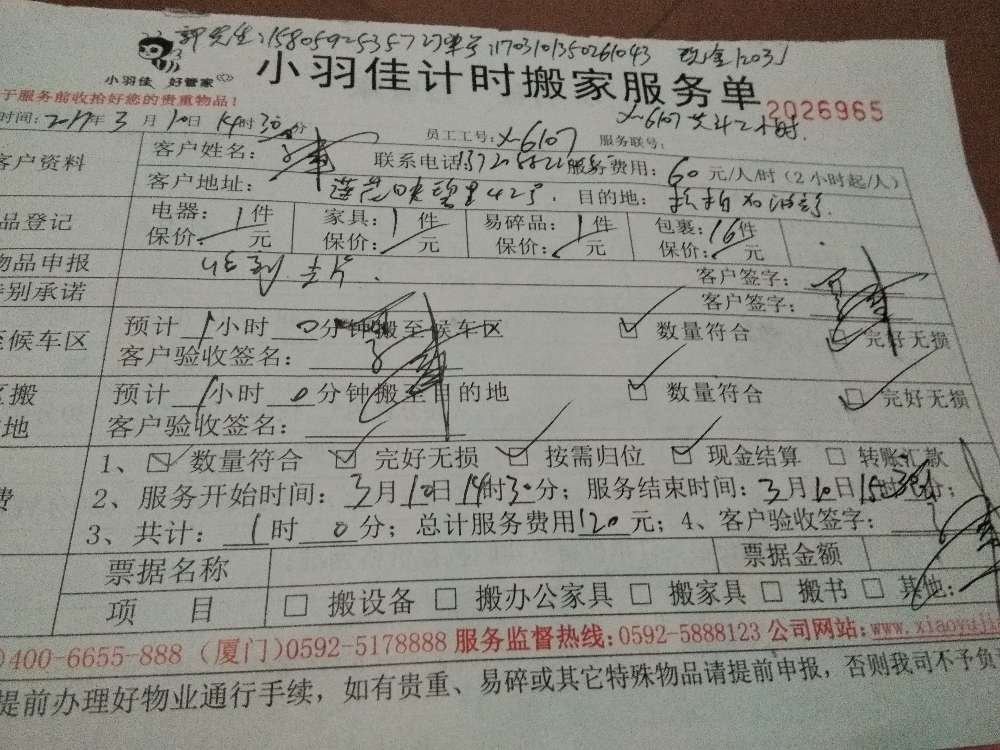 郭先生:15805925357 订单号:1703101350261043 现金120元
小羽佳 好管家
小羽佳计时搬家服务单
于服务前收拾好您的贵重物品! 2026965
X-6107 共计2小时.
时间:2017年3月10日14时30分 员工工号:X-6107 服务联号:
客户资料 客户姓名: 联系电话: 服务费用:60元/人/时(2小时起/人)
客户地址: 莲花 里42号. 目的地:
品登记 电器:1件 家具:1件 易碎品:1件 包裹:16件
保价: 元 保价: 元 保价: 元 保价: 元
物品申报 客户签字:
特别承诺 客户签字:
至候车区 预计1小时0分钟搬至候车区 数量符合 完好无损
客户验收签名:
区搬 预计1小时0分钟搬至目的地 数量符合 完好无损
地 客户验收签名:
1、 数量符合 完好无损 按需归位 现金结算 转账汇款
费 2、服务开始时间:3月10日14时30分;服务结束时间:3月10日15时30分;
3、共计:1时0分;总计服务费用120元;4、客户验收签字:
票据名称 票据金额
项 目 搬设备 搬办公家具 搬家具 搬书 其他:
400-6655-888(厦门)0592-5178888 服务监督热线:0592-5888123 公司网站:www.xiaoyuji
提前办理好物业通行手续,如有贵重、易碎或其它特殊物品请提前申报,否则我司不予负